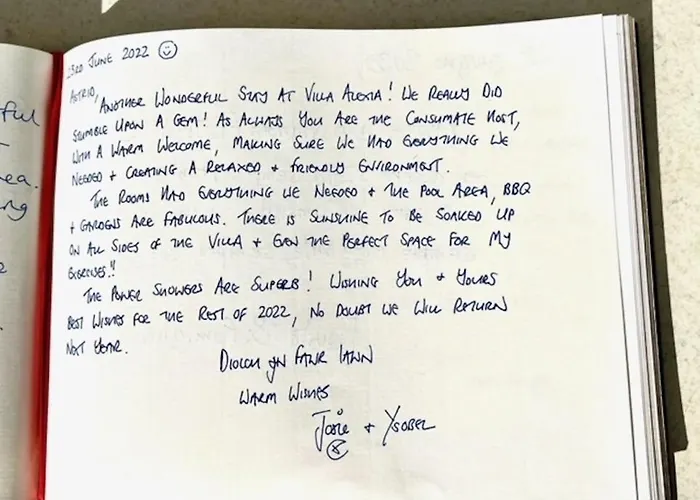 ful
ea.
ng
23RD JUNE 2022
ASTRID,
ANOTHER WONDERFUL STAY AT VILLA ALEXIA! WE REALLY DID
STUMBLE UPON A GEM! AS ALWAYS YOU ARE THE CONSUMATE HOST,
WITH A WARM WELCOME, MAKING SURE WE HAD EVERYTHING WE
NEEDED + CREATING A RELAXED + FRIENDLY ENVIRONMENT.
THE ROOMS HAD EVERYTHING WE NEEDED + THE POOL AREA, BBQ
+ GARDENS ARE FABULOUS. THERE IS SUNSHINE TO BE SOAKED UP
ON ALL SIDES OF THE VILLA + EVEN THE PERFECT SPACE FOR MY
EXERCISES!!
THE POWER SHOWERS ARE SUPERB! WISHING YOU + YOURS
BEST WISHES FOR THE REST OF 2022, NO DOUBT WE WILL RETURN
NEXT YEAR.
DIOLCH YN FAWR IAWN
WARM WISHES
Josie + YSOBEL